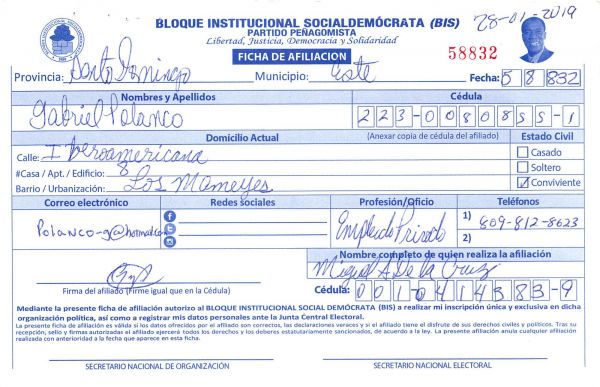 BLOQUE INSTITUCIONAL SOCIALDEMÓCRATA (BIS)
PARTIDO PEÑAGOMISTA
Libertad, Justicia, Democracia y Solidaridad
28-01-2019
FICHA DE AFILIACION
58832
Provincia: Santo Domingo Municipio: Este Fecha: 5 8 832
Nombres y Apellidos Cédula
Gabriel Polanco 223-0080855-1
Domicilio Actual (Anexar copia de cédula del afiliado) Estado Civil
Calle: Iberoamericana Casado
#Casa / Apt. / Edificio: 8 Soltero
Barrio / Urbanización: Los Mameyes Conviviente
Correo electrónico Redes sociales Profesión/Oficio Teléfonos
Polanco-g@hotmail.com Empleado Privado 1) 809-812-8623
2)
Nombre completo de quien realiza la afiliación
Miguel A De la Cruz
Firma del afiliado (Firme igual que en la Cédula) Cédula: 001-0414383-9
Mediante la presente ficha de afiliación autorizo al BLOQUE INSTITUCIONAL SOCIAL DEMÓCRATA (BIS) a realizar mi inscripción única y exclusiva en dicha
organización política, así como a registrar mis datos personales ante la Junta Central Electoral.
La presente ficha de afiliación es válida si los datos ofrecidos por el afiliado son correctos, las declaraciones veraces y si el afiliado tiene el disfrute de sus derechos civiles y políticos. Tras su
recepción, sello y firmas autorizadas el afiliado ejercerá todos los derechos y los deberes estatutariamente sancionados, de acuerdo a la ley. La presente afiliación anula cualquier afiliación
realizada con anterioridad a la fecha que aparece en esta ficha.
SECRETARIO NACIONAL DE ORGANIZACIÓN SECRETARIO NACIONAL ELECTORAL